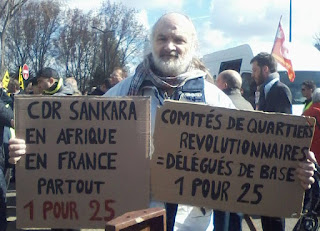 CDR SANKARA
EN AFRIQUE
EN FRANCE
PARTOUT
1 POUR 25
COMITÉS DE QUARTIERS
REVOLUTIONNAIRES
= DÉLÉGUÉS DE BASE
1 POUR 25